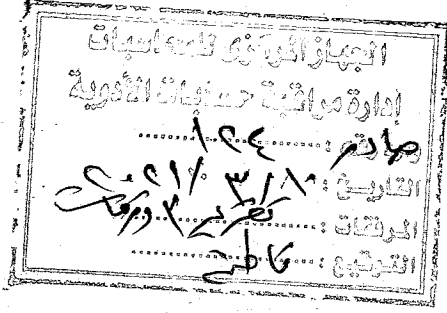 الجهاز المركزى للمحاسبات
إدارة مراقبة حسابات الأدوية
صادر رقم : ١٢٤
التاريخ : ٢٠٢١/٣/١٠
المرفقات : تقرير ٣ ورقات
التوقيع :